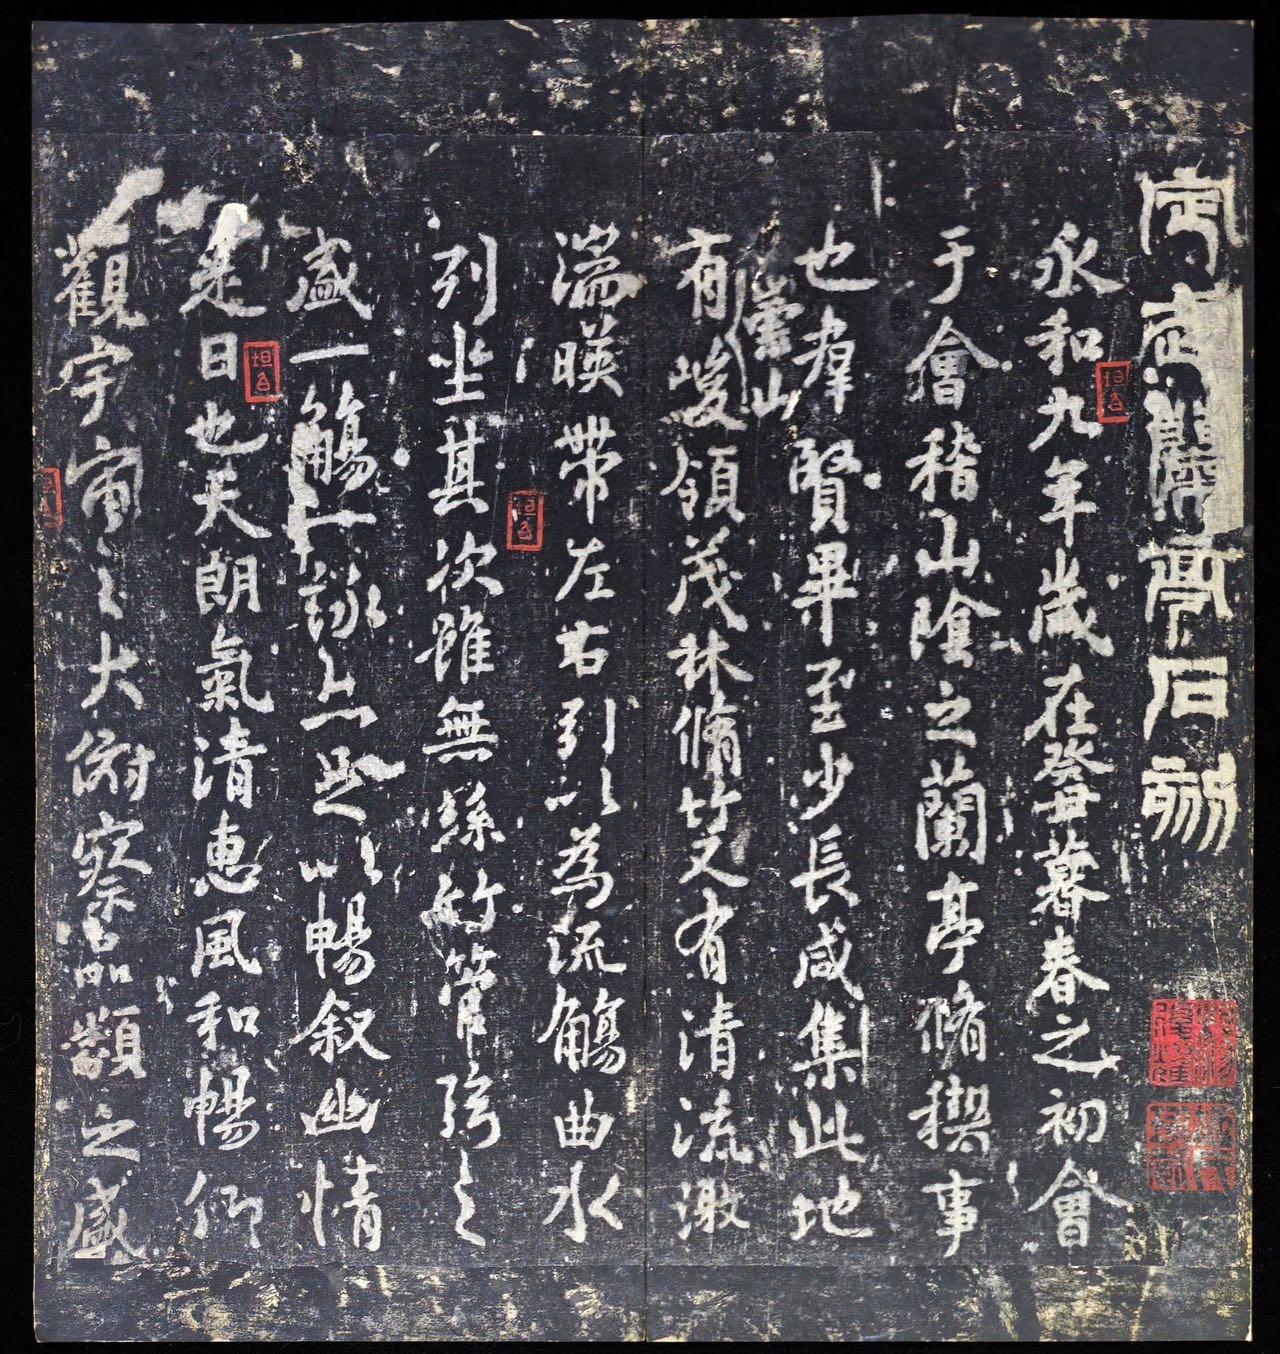 定武蘭亭石刻
永和九年歲在癸丑暮春之初會
于會稽山陰之蘭亭脩稧事
也羣賢畢至少長咸集此地
有崇山峻領茂林脩竹又有清流激
湍暎帶左右引以為流觴曲水
列坐其次雖無絲竹管弦之
盛一觴一詠亦足以暢叙幽情
是日也天朗氣清惠風和暢仰
觀宇宙之大俯察品類之盛